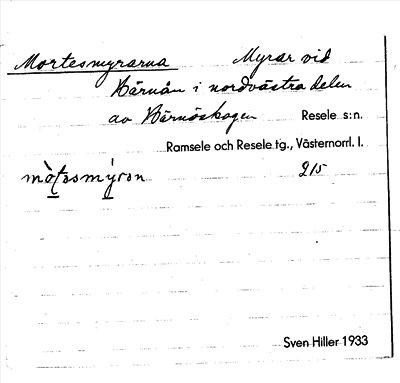 Mortesmyrarna Myrar vid
Bärnån i nordvästra delen
av Bärnöskogen Resele s:n.
Ramsele och Resele tg., Västernorrl. l.
215
Sven Hiller 1933